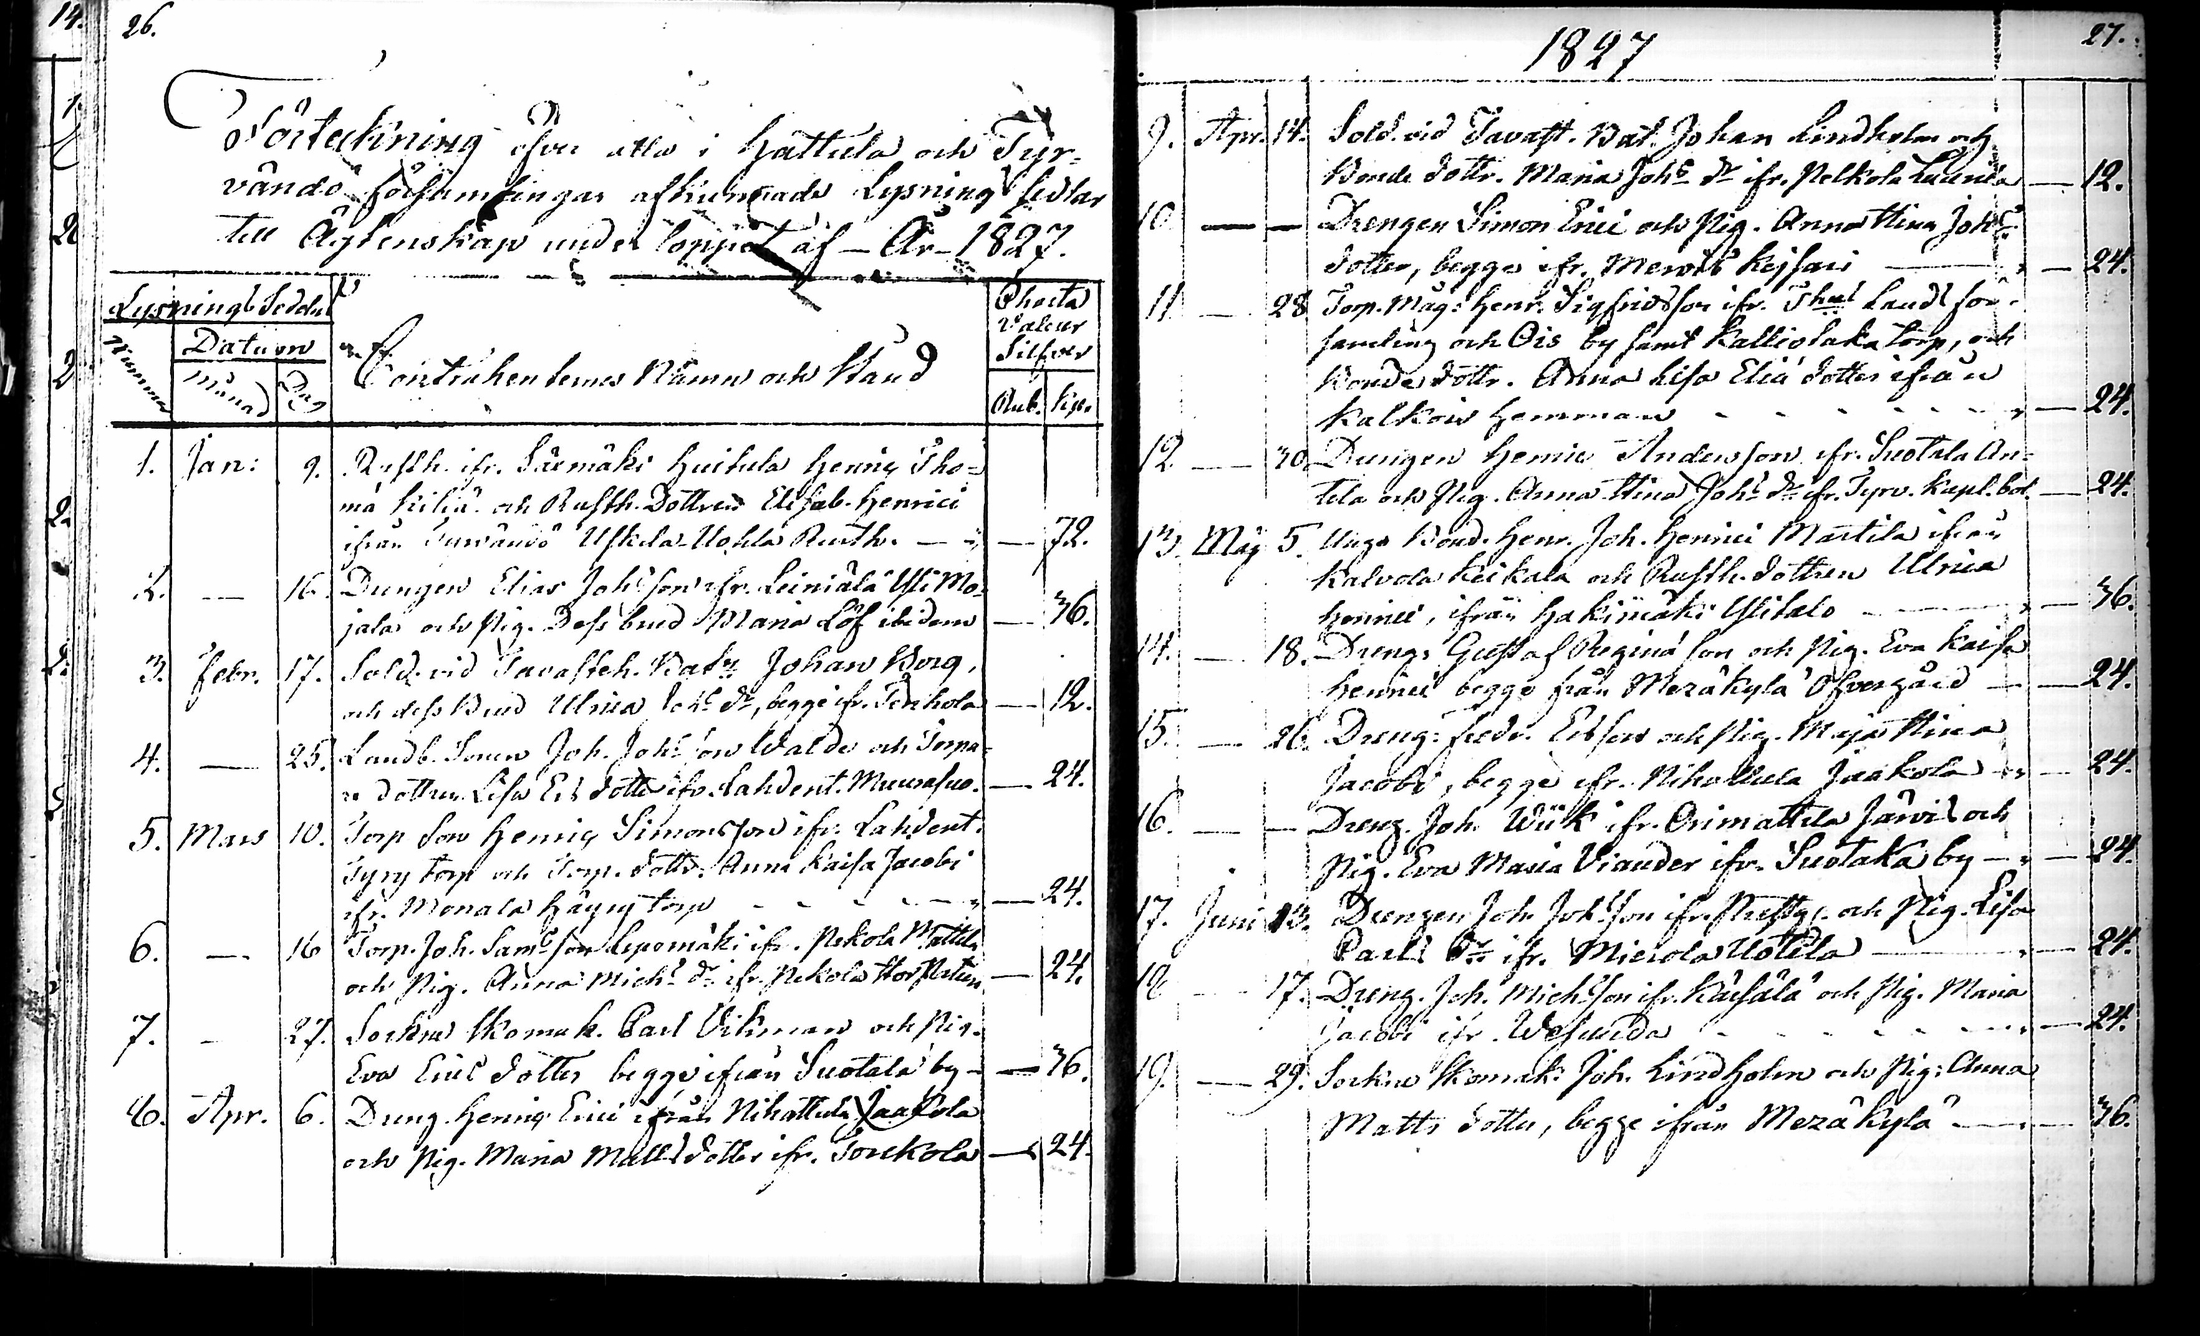 26.
Förteckning öfver alla i Hattula och Tyr-
vändö församlingar afkunnade Lysning Sedlar
till Ägtenskap under loppet af – År – 1827.
Lysnings Seddel
Nummer
Datum
Månad
Dag
Contrahenternes Namn och Stånd
Charta
Valeur
Silfver
Rub. Kop.
1. Jan: 9. Rusth. ifr. Särmäki Huitula Henriq Tho-
mæ Kiliä och Rusth. Dottren Elisab. Henrici
ifrån Tyrvändö Uskila Uohla Rusth. — 72.
2. — 16. Drengen Elias Johsson ifr. Leiniälä Yli Mo-
jala och Pig. Dess brud Maria Löf ibidem — 36.
3. Febr. 17. Sold. vid Tavasteh. Batn Johan Borg,
och dess Brud Ulrica Johs dr, begge ifr. Tenhola — 12.
4. — 25. Landb. Sonen Joh. Johsson Walde och Torpa-
re dottren Lisa Ers dotter ifr. Lahdent. Muurasuo. — 24.
5. Mars 10. Torp Son Henriq Simonsson ifr. Lahdent.
Tyry torp och Torp. dottr. Anna Kaisa Jacobi
ifr. Monala Häyry torp — 24.
6. — 16 Torp. Joh. Samsson Lepomäki ifr. Pekola Mattila
och Pig. Anna Michs dr ifr. Pekola — 24.
7. - 27. Sockne Skomak. Carl Vikman och Pig.
Eva Erics dotter begge ifrån Suotala by — 36.
8. Apr. 6. Dreng Henriq Erici ifrån Nihattula Jaakola
och Pig. Maria Matts dotter ifr. Torekola — 24.
1827
27.
9. Apr. 14. Sold. vid Tavast. Bat. Johan Lindholm och
Bonde dottr. Maria Johs dr ifr. Pelkola Laurila — 12.
10. — — Drengen Simon Erici och Pig. Anna Stina Johs
dotter, begge ifr. Mervis Keisari — 24.
11 — 28 Torp. Måg: Henr. Sigfridsson ifr. Thus Lands för-
samling och Ois by samt Kalliolaka torp, och
Bonde dottr. Anna Lisa Eliæ dotter ifrån
Kalkois Hemman - - - 24.
12. — 30. Drengen Henric Andersson ifr. Suotala An-
tila och Pig. Anna Stina Johs dr ifr. Tyrv. Kapl. bol. — 24.
13. Maj 5. Unge Bond. Henr. Joh. Henrici Martila ifrån
Kalvola Keikala och Rusth. dottren Ulrica
Henrici, ifrån Hakimäki Ylitalo — 36.
14. — 18. Dreng: Gustaf Reginæ son och Pig. Eva Kaisa
Henrici begge från Mezäkylä Öfvergård — 24.
15. — 26. Dreng: Fredr. Ersson och Pig. Maja Stina
Jacobi, begge ifr. Nihattula Jaakola — 24.
16. — — Dreng. Joh. Wiik ifr. Orimattila Järvis och
Pig. Eva Maria Viander ifr. Suotaka by — 24.
17. Juni 13. Drengen Joh. Johsson ifr. Prestg. och Pig. Lisa
Carls dr ifr. Mierola Uotila — 24.
18 — 17. Dreng. Joh. Michsson ifr. Kärsälä och Pig. Maria
Jacobi ifr. Wesunda - - - 24.
19. — 29. Sockne Skomak: Joh. Lindholm och Pig: Anna
Matts dotter, begge ifrån Mezäkylä — 36.